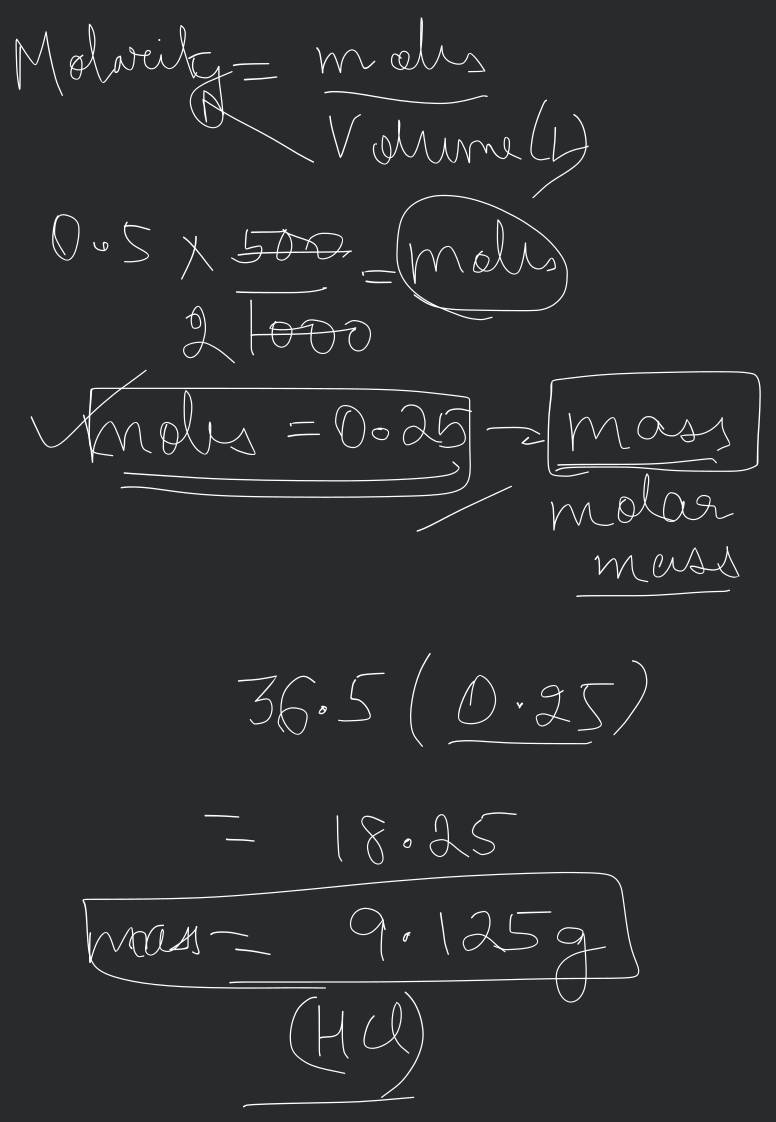 Molarity = moles
Volume (L)
0.5 × 500 = moles
2 1000
moles = 0.25 → mass
molar
mass
36.5 (0.25)
= 18.25
mass = 9.125g
(HCl)